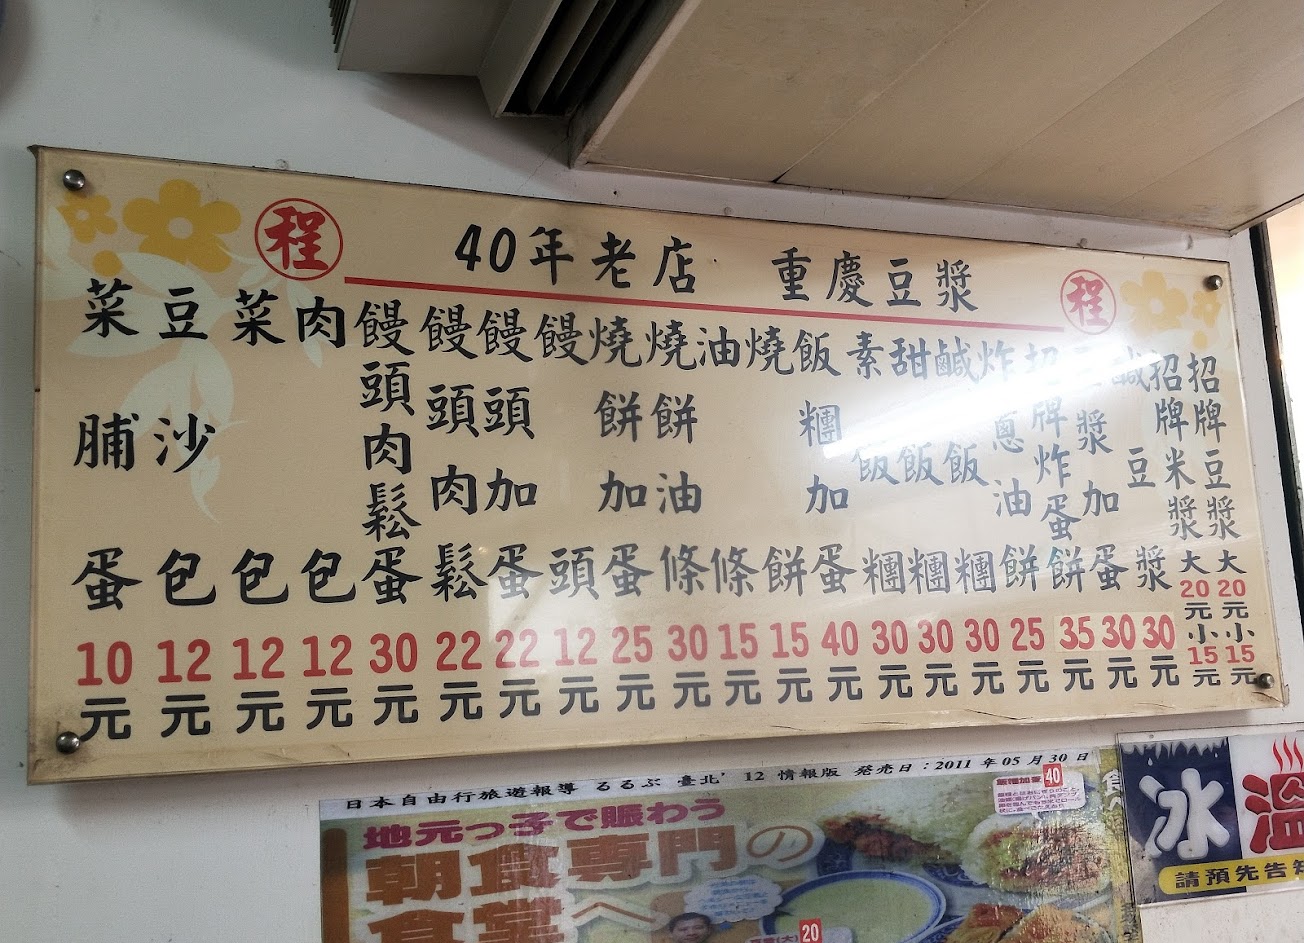 程 40年老店 重慶豆漿 程
招牌豆漿大20元小15元
招牌米漿大20元小15元
鹹豆漿30元
豆漿加蛋30元
招牌炸蛋餅35元
炸蔥油餅25元
鹹飯糰30元
甜飯糰30元
素飯糰30元
飯糰加蛋40元
燒餅15元
油條15元
燒餅油條30元
燒餅加蛋25元
饅頭12元
饅頭加蛋22元
饅頭肉鬆22元
饅頭肉鬆蛋30元
肉包12元
菜包12元
豆沙包12元
菜脯蛋10元
日本自由行旅遊報導 るるぶ 臺北'12 情報版 発売日:2011年05月30日
地元っ子で賑わう
朝食専門の
食堂へ
40
20
冰 溫
請預先告知